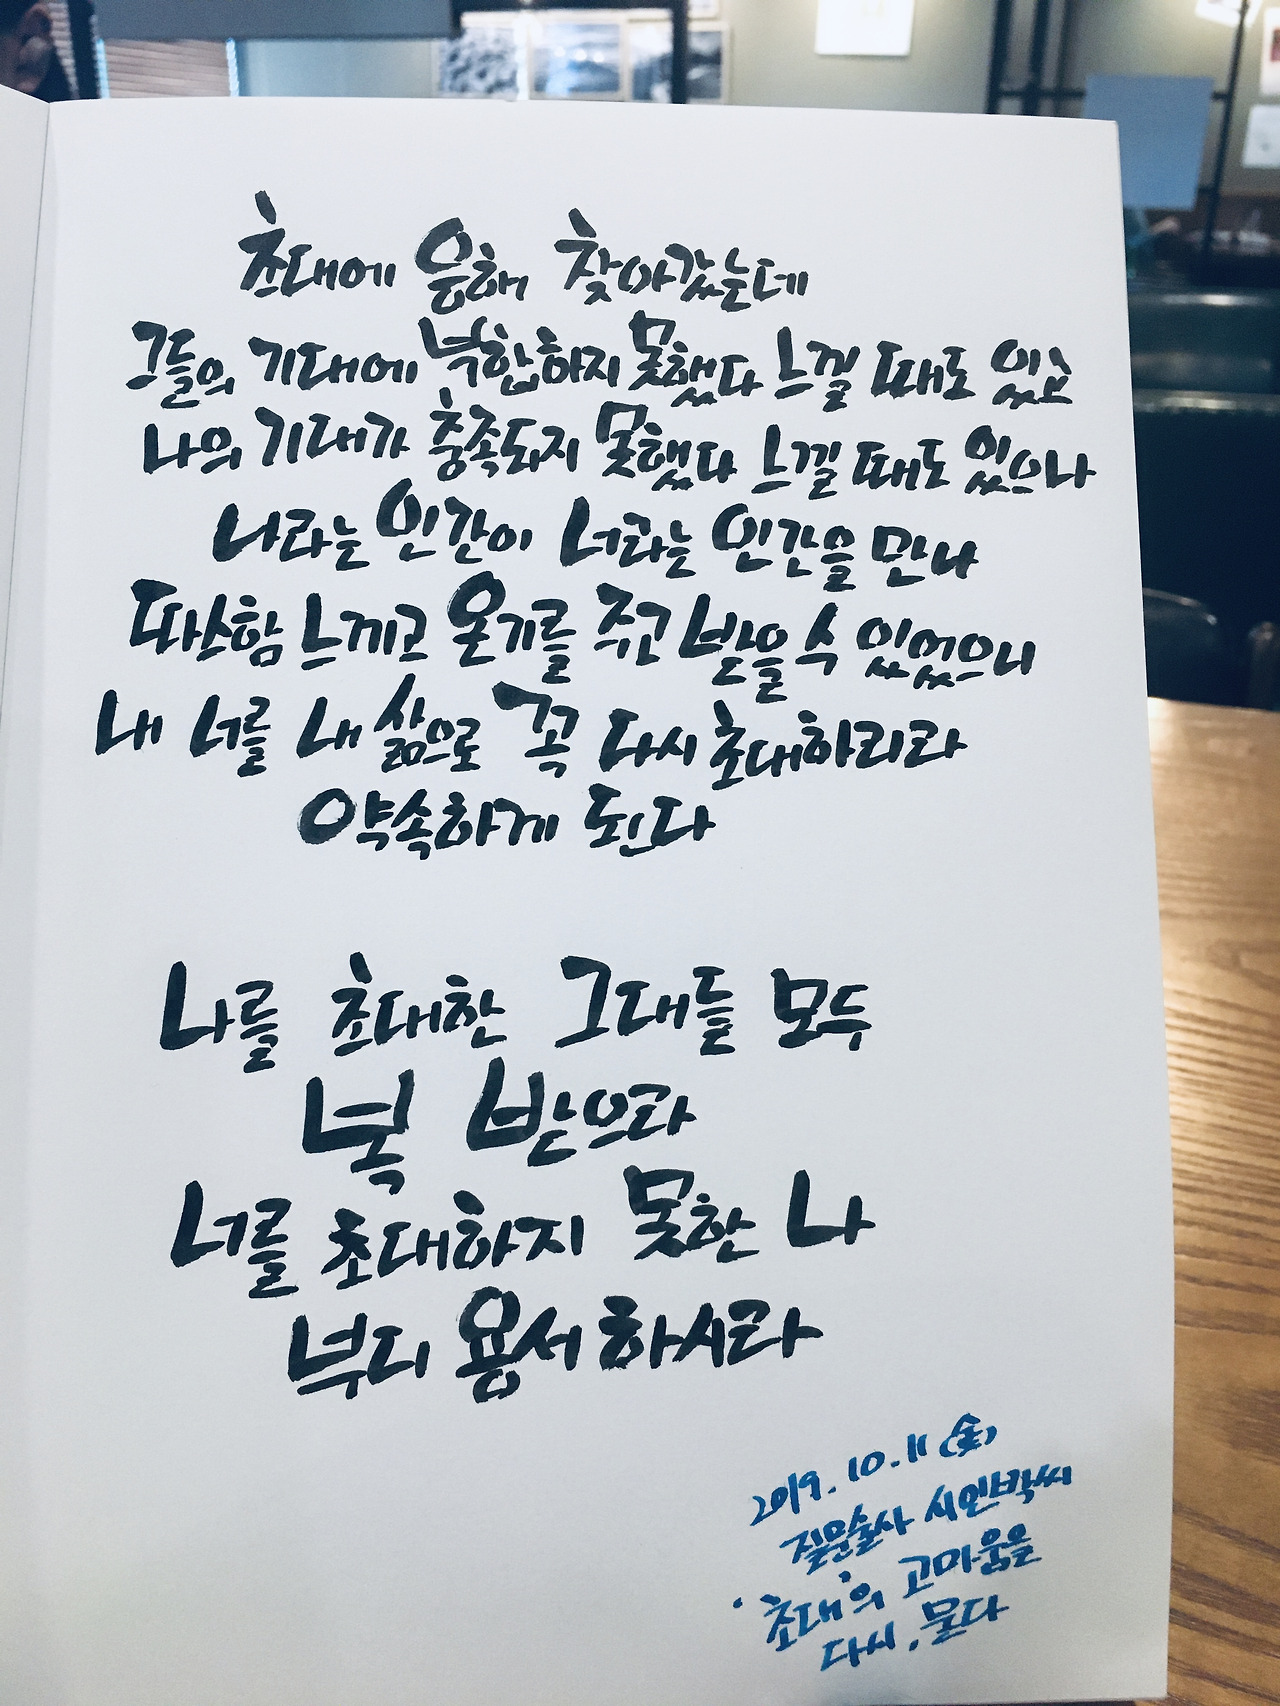 초대에 응해 찾아갔는데
그들의 기대에 부합하지 못했다 느낄 때도 있고
나의 기대가 충족되지 못했다 느낄 때도 있으나
나라는 인간이 너라는 인간을 만나
따스함 느끼고 온기를 주고 받을 수 있었으니
내 너를 내 삶으로 꼭 다시 초대하리라
약속하게 된다
나를 초대한 그대들 모두
복 받으라
너를 초대하지 못한 나
부디 용서하시라
2019. 10. 11 (金)
질문술사 시인박씨
'초대'의 고마움을
다시, 묻다